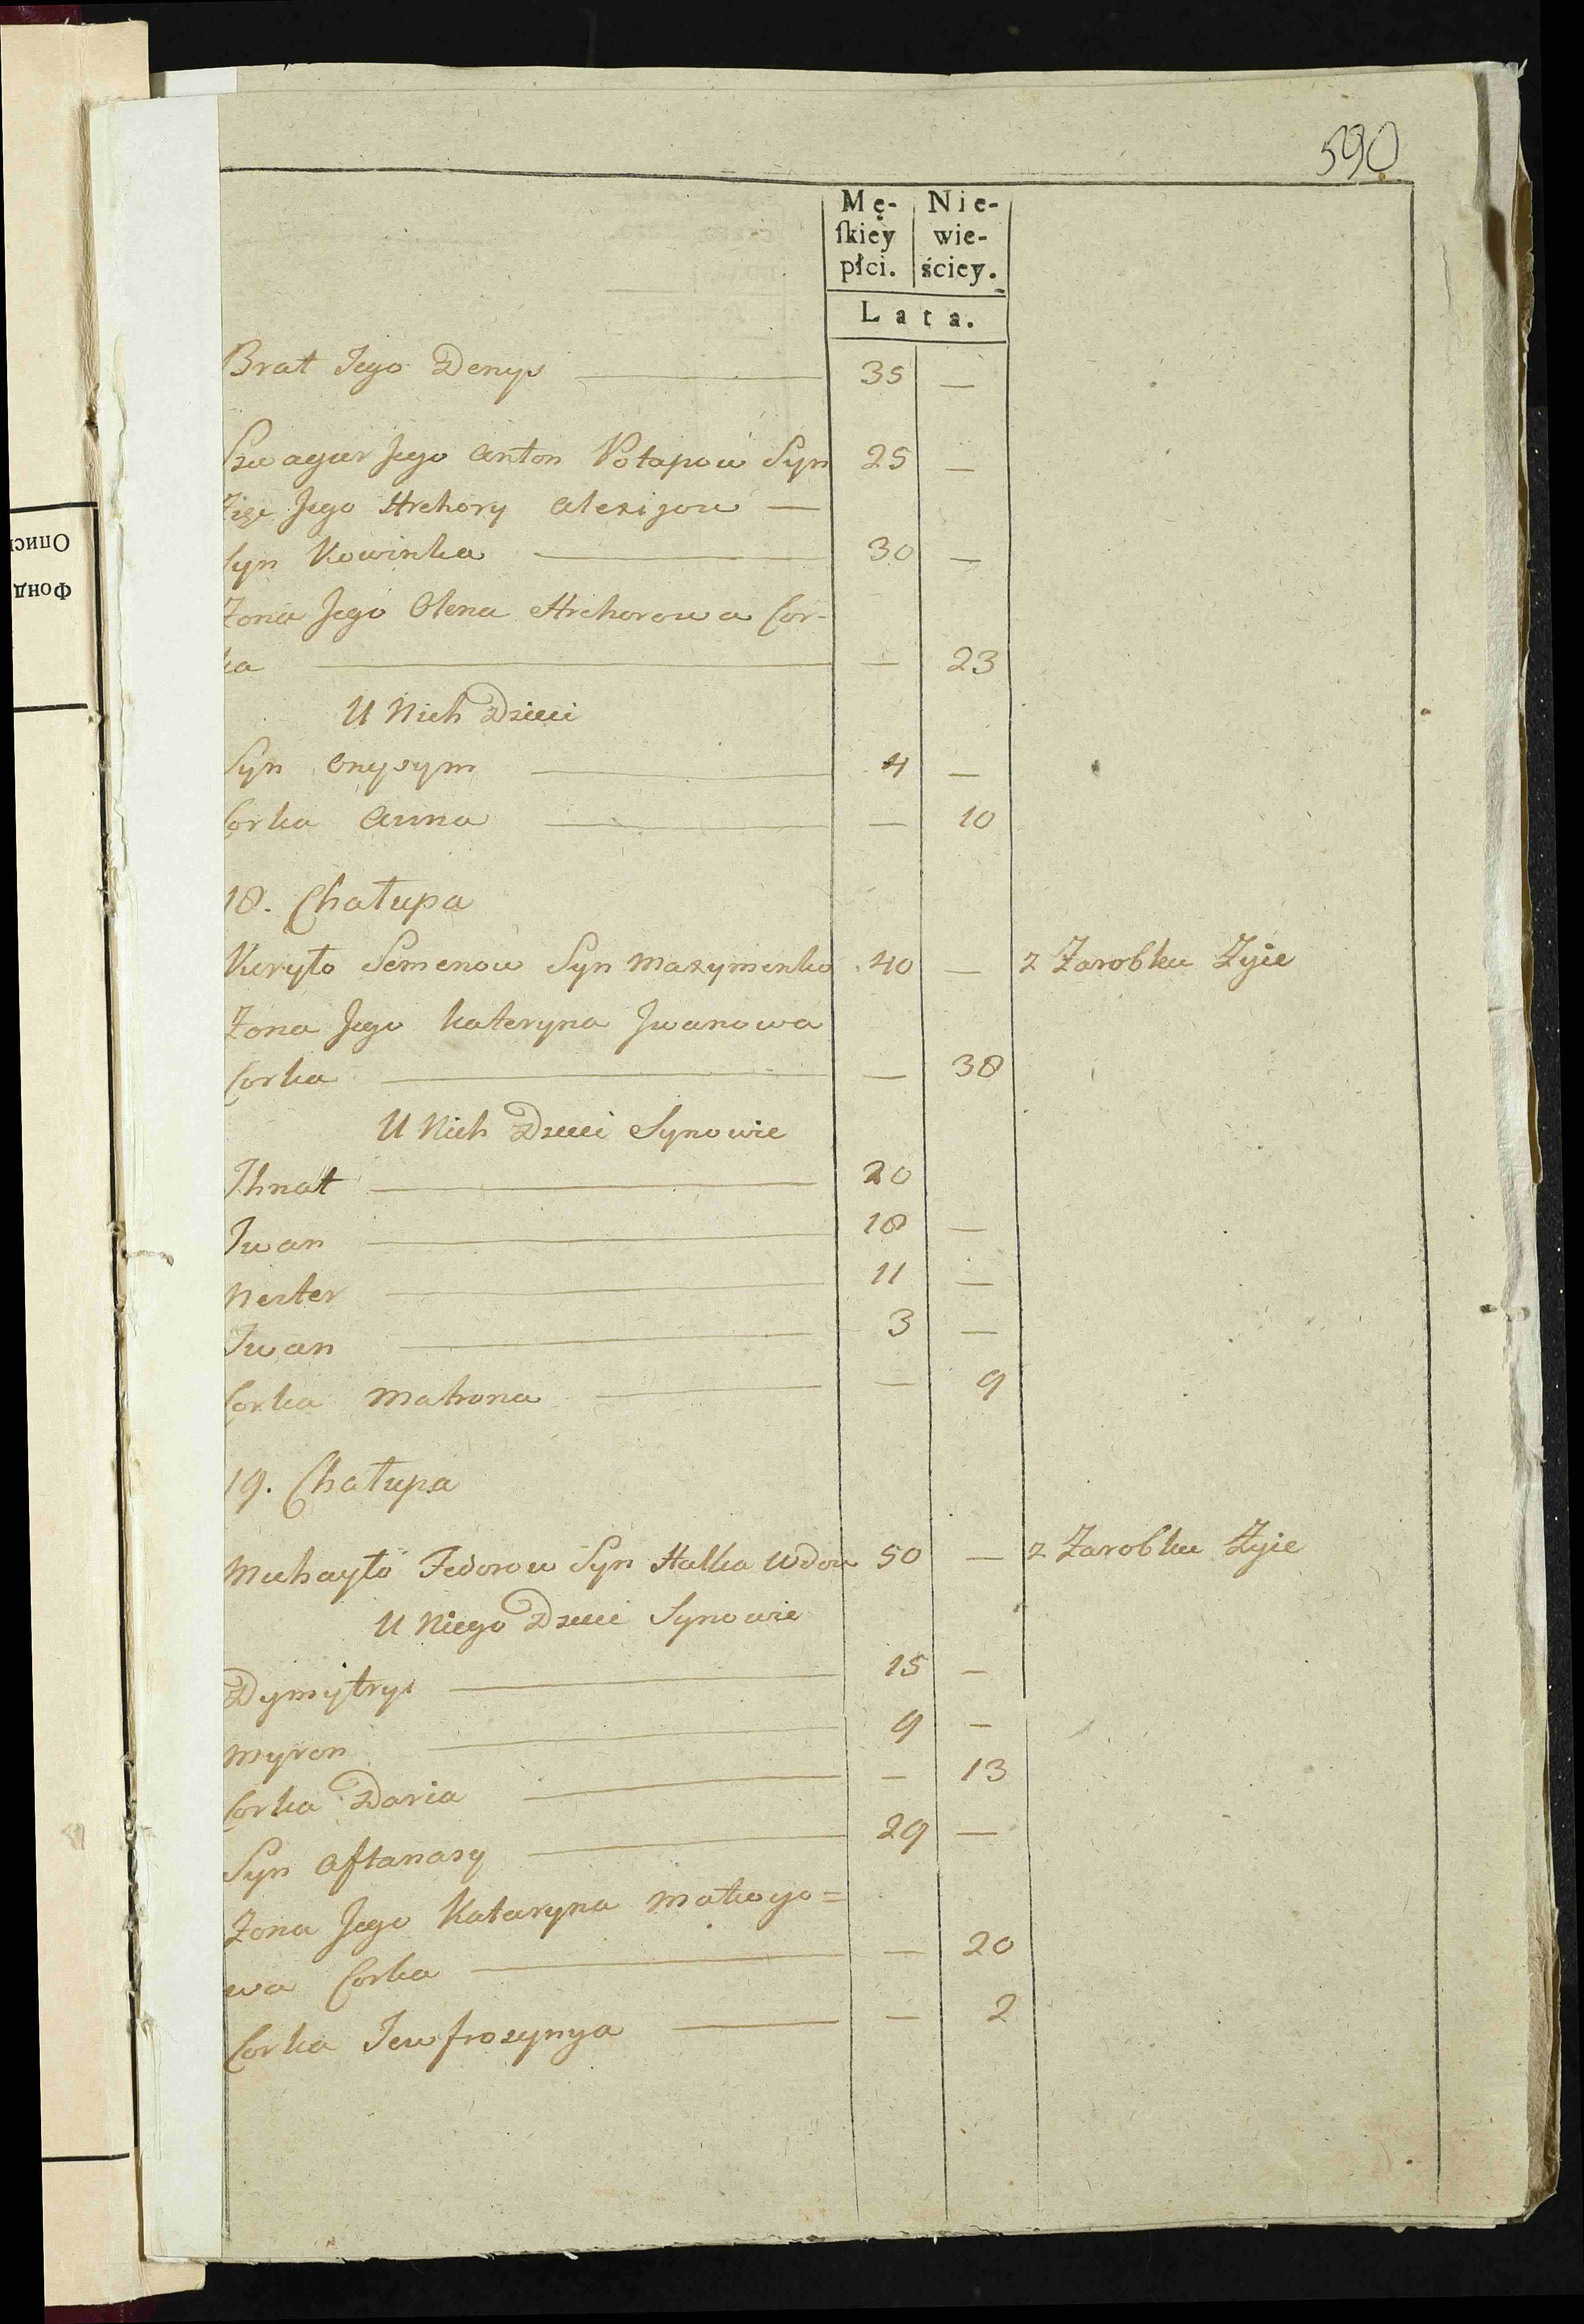 590
Mę- Nie-
ſkiey wie-
płci. ściey.
Lata.
Brat Jego Denys — 35 —
Szwagier Jego Anton Potapow Syn 25 —
Zięć Jego Hrehory Alexijow —
Syn Kowinka — 30 —
Zona Jego Olena Hrehorowa Cor-
ka — — 23
U Nich Dzieci
Syn Onysym — 4 —
Corka Anna — — 10
18. Chałupa
Kuryło Semenow Syn Maxymenko 40 — z Zarobku Żyie
Zona Jego Kateryna Jwanowa
Corka — — 38
U Nich Dzieci Synowie
Jhnat — 20
Jwan — 18 —
Nester — 11 —
Jwan — 3 —
Corka Matrona — — 9
19. Chałupa
Michayło Fedorow Syn Halka Wdow 50 — z Zarobku Żyie
U Niego Dzieci Synowie
Dymytryi — 15 —
Myron — 9 —
Corka Daria — — 13
Syn Aftanasy — 29 —
Zona Jego Kataryna Matwyo=
wa Corka — — 20
Corka Jewfrosynya — — 2
Опис
Фонд